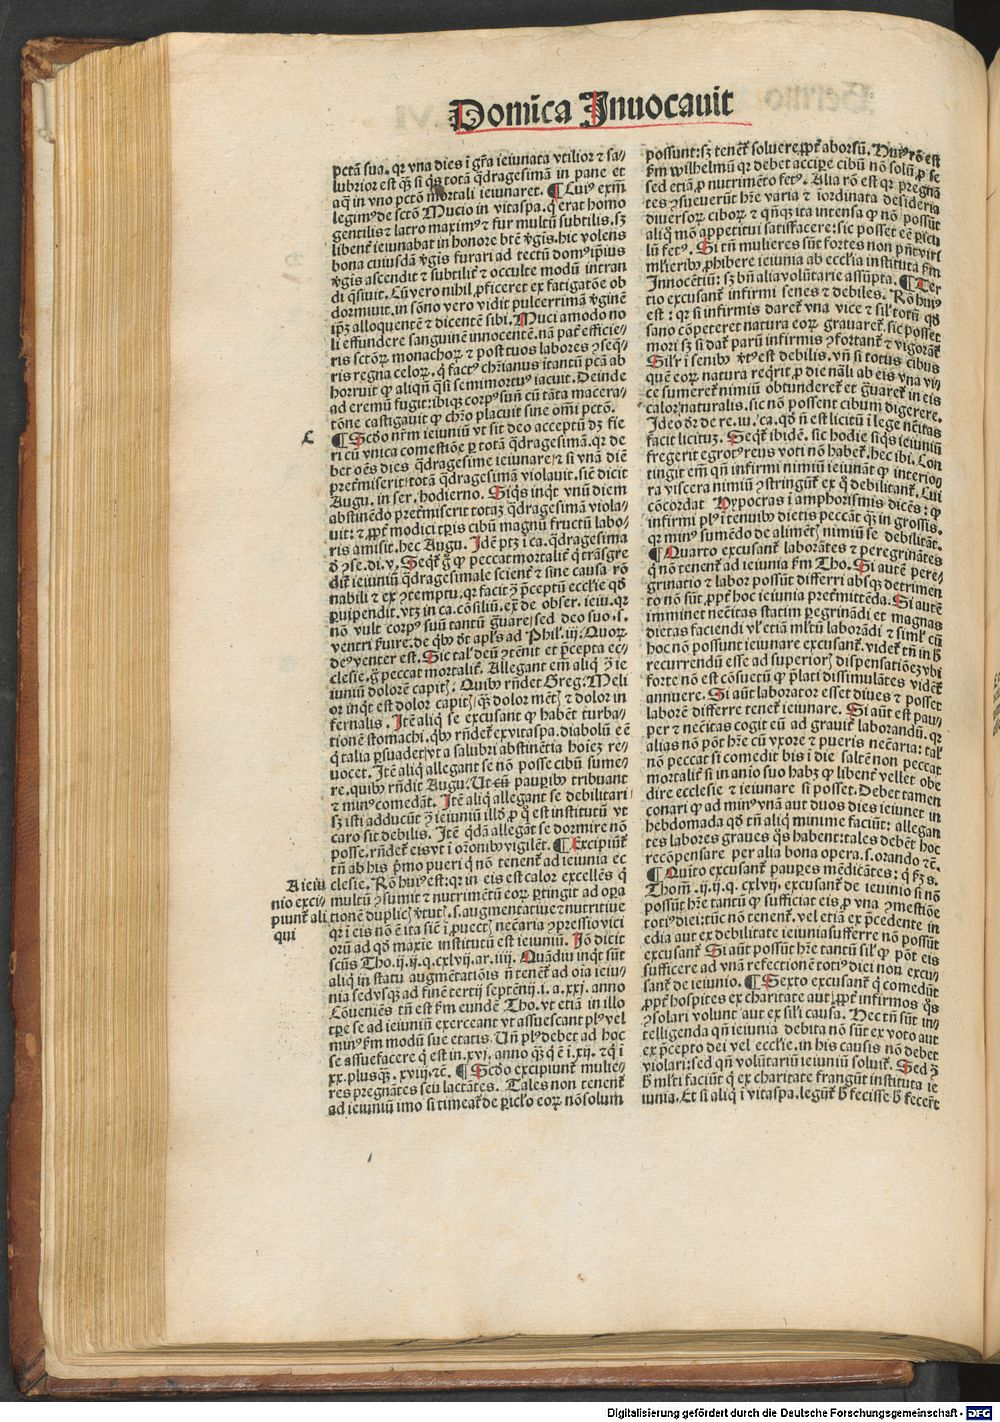 Domīca Inuocauit
pctā sua. qꝛ vna dies ī gr̄a ieiunata vtilior ⁊ sa⸗
lubrior est q̄ꝫ si q̄s totā q̄dragesimā in pane et
aq̄ in vno pctō mortali ieiunaret. ¶ Cuiꝰ exm̄
legimꝰ de sctō Mucio in vitaspa. q̄ erat homo
gentilis ⁊ latro maximꝰ ⁊ fur multū subtilis. sꝫ
libent̄ ieiunabat in honore bt̄e v̄gis. hic volens
bona cuiusdā v̄gis furari ad tectū domꝰ ip̄ius
v̄gis ascendit ⁊ subtilit̄ ⁊ occulte modū intran
di q̄siuit. Cū vero nihil ꝓficeret ex fatigatōe ob
dormiuit. in sōno vero vidit pulcerrimā v̄ginē
ip̄ꝫ alloquentē ⁊ dicentē sibi. Muci amodo no
li effundere sanguinē innocentē. nā pat̄ efficie⸗
ris sctōꝝ monachoꝝ ⁊ post tuos labores ꝯseq̄⸗
ris regna celoꝝ. q̄ factꝰ chr̄ianus itantū pctā ab
horruit ꝙ aliqn̄ q̄si semimortuꝰ iacuit. Deinde
ad eremū fugit: ibiqꝫ corpꝰ suū cū tāta macera⸗
tōne castigauit ꝙ chr̄o placuit sine om̄i pctō.
C
¶ Scd̄o nr̄m ieiuniū vt sit deo acceptū dꝫ fie
ri cū vnica comestiōe ꝑ totā q̄dragesimā. qꝛ de
bet oēs dies q̄dragesime ieiunare/ ⁊ si vnā diē
p̄termiserit/ totā q̄dragesimā violauit. sic̄ dicit
Augu. in ser. hodierno. Siq̄s inq̄t vnū diem
abstinēdo pret̄miserit totaꝫ q̄dragesimā viola⸗
uit: ⁊ ꝓpt̄ modici tp̄is cibū magnū fructū labo⸗
ris amisit. hec Augu. Idē ptꝫ i ca. q̄dragesima
de ꝯse. di. v. Seq̄t̄ g̊ ꝙ peccat mortalit̄ q̄ trāsgre
dit̄ ieiuniū q̄dragesimale scient̄ ⁊ sine causa rō
nabili ⁊ ex ꝯtemptu. qꝛ facit ꝯ p̄ceptū eccl̄ie qd̄
ꝑuipendit. vtꝫ in ca. cōsiliū. exͣ de obser. ieiu. qꝛ
nō vult corpꝰ suū tantū g̊uare/ sed deo suo .s.
ventri ẜuire. de q̄bꝰ dt̄ apl̄s ad Phil. iij. Quoꝝ
deꝰ venter est. Sic tal̄ deū ꝯtēnit et p̄cepta ec⸗
clesie. g̊ peccat mortalit̄. Allegant em̄ aliq̄ ꝯ ie
iuniū dolorē capitꝭ. Quibꝰ rn̄det Greg. Meli
or inq̄t est dolor capitꝭ/ q̄ꝫ dolor mētꝭ ⁊ dolor in
fernalis. Itē aliq̄ se excusant ꝙ habēt turba⸗
tionē stomachi. q̄bꝰ rn̄det̄ ex vitaspa. diabolū eē
q̄ talia ꝑsuadet/ vt a salubri abstinētia hoīeꝫ re⸗
uocet. Itē aliq̄ allegant se nō posse cibū sume⸗
re. quibꝰ rn̄dit Augu. Ut cū pauꝑibꝰ tribuant
⁊ minꝰ comedāt. Itē aliq̄ allegant se debilitari
sꝫ isti adducūt ꝯ ieiuniū illd̄ ꝓ q̄ est institutū vt
caro sit debilis. Itē q̄dā allegāt se dormire nō
posse. rn̄det̄ eis vt i or̄onibꝰ vigilēt. ¶ Excipiunt̄
tn̄ ab his p̄mo pueri q̄ nō tenent̄ ad ieiunia ec
A ieiu
nio exci⸗
piunt̄ ali
qui
clesie. Rō huiꝰ est: qꝛ in eis est calor excellēs q̄
multū ꝯsumit ⁊ nutrimētū eoꝝ ꝑtingit ad oꝑa
tionē duplicꝭ v̄tutꝭ. s. augmentatiue ⁊ nutritiue
qꝛ i eis nō ē ita sic̄ i ꝓuectꝭ nec̄aria ꝯpressio vici
orū ad qd̄ maxīe institutū est ieiuniū. Iō dicit
scūs Tho. ij. ij. q. cxlvij. ar. iiij. Quādiu inq̄t sūt
aliq̄ in statu augmētatiōis n̄ tenent̄ ad oīa ieiu⸗
nia sed vsqꝫ ad finē tertij septēnij .i. a. xxj. anno
Cōueniēs tn̄ est ẜm eundē Tho. vt etiā in illo
tꝑe se ad ieiuniū exerceant vt assuescant plꝰ vel
minꝰ ẜm modū sue etatis. Un̄ plꝰ debet ad hoc
se assuefacere q̄ est in. xvj. anno q̄ꝫ q̄ ē i. xij. ⁊ q̄ i
xx. plusqꝫ. xviij. ⁊c̄. ¶ Scd̄o excipiunt̄ mulie⸗
res pregnātes seu lactātes. Tales non tenent̄
ad ieiuniū imo si timeat̄ de ꝑicl̄o eoꝝ nō solum
possunt: sꝫ tenent̄ soluere ꝓpt̄ aborsū. Huiꝰ rō est
ẜm wilhelmū qꝛ debet accipe cibū nō solū ꝓ se
sed etiā ꝓ nutrimēto fetꝰ. Alia rō est qꝛ pregnā
tes ꝯsueuerūt hr̄e varia ⁊ iordinata desideria
diuersoꝝ ciboꝝ ⁊ qn̄qꝫ ita intensa ꝙ nō possūt
aliq̄ mō appetitui satisfacere: sic posset eē ꝑicu
lū fetꝰ. Si tn̄ mulieres sūt fortes non pn̄t viri
ml̄ieribꝰ ꝓhibere ieiunia ab eccl̄ia instituta ẜm
Innocētiū: sꝫ bn̄ alia volūtarie assūpta. ¶ Ter
tio excusant̄ infirmi senes ⁊ debiles. Rō huiꝰ
est: qꝛ si infirmis daret̄ vna vice ⁊ sil̄ totū qd̄
sano cōpeteret natura eoꝝ grauaret̄. sic posset
mori sꝫ si dat̄ parū infirmis ꝯfortant̄ ⁊ vigorāt̄
Sil̄r i senibꝰ v̄tꝰ est debilis. vn̄ si totus cibus
quē eoꝝ natura req̄rit ꝓ die nāli ab eis vna vi⸗
ce sumeret̄ nimiū obtunderet̄ et g̊uaret̄ in eis
calor naturalis. sic nō possent cibum digerere.
Ideo dr̄ de re. iu. ca. qd̄ n̄ est licitū i lege nēcitas
facit licituꝫ. Seqt̄ ibidē. sic hodie siq̄s ieiuniū
fregerit egrotꝰ reus voti nō habet̄. hec ibi. Con
tingit em̄ qn̄ infirmi nimiū ieiunāt ꝙ interio⸗
ra viscera nimiū ꝯstringūt̄ ex q̄ debilitant̄. Cui
cōcordat Hypocras i amphorismis dicēs: ꝙ
infirmi plꝰ i tenuibꝰ dietis peccāt q̄ꝫ in grossis.
qꝛ minꝰ sumēdo de alimētꝭ nimiū se debilitāt.
¶ Quarto excusant̄ laborātes ⁊ peregrinātes
q̄ nō tenent̄ ad ieiunia ẜm Tho. Si autē pere⸗
grinatio ⁊ labor possūt differri absqꝫ detrimen
to nō sūt ꝓpt̄ hoc ieiunia pret̄mittēda. Si autē
imminet nec̄itas statim ꝑegrinādi et magnas
dietas faciendi vl̄ etiā ml̄tū laborādi ⁊ siml̄ cū
hoc nō possunt ieiunare excusant̄. videt̄ tn̄ in h̄
recurrendū esse ad superiorꝭ dispensatiōeꝫ vbi
forte nō est cōsuetū ꝙ p̄lati dissimulātes vident̄
annuere. Si aūt laborator esset diues ⁊ posset
laborē differre tenet̄ ieiunare. Si aūt est pau⸗
per ⁊ nec̄itas cogit eū ad grauit̄ laborandū. qꝛ
alias nō pōt hr̄e cū vxore ⁊ pueris nec̄aria: tal̄
nō peccat si comedit bis i die saltē non peccat
mortalit̄ si in aīo suo habꝫ ꝙ libent̄ vellet obe
dire ecclesie ⁊ ieiunare si posset. Debet tamen
conari ꝙ ad minꝰ vnā aut duos dies ieiunet in
hebdomada qd̄ tn̄ aliq̄ minime faciūt: allegan
tes labores graues q̄s habent: tales debēt hoc
recōpensare per alia bona opera .s. orando ⁊c̄.
¶ Quīto excusant̄ pauꝑes mēdicātes: q̄ ẜꝫ s.
Thom̄. ij. ij. q. cxlvij. excusant̄ de ieiunio si nō
possūt hr̄e tantū ꝙ sufficiat eis ꝓ vna ꝯmestiōe
totiꝰ diei: tūc nō tenent̄. vel etiā ex p̄cedente in
edia aut ex debilitate ieiunia sufferre nō possūt
excusant̄ Si aūt possūt hr̄e tantū sil̄ qd̄ pōt eis
sufficere ad vnā refectionē totiꝰ diei non excu⸗
sant̄ de ieiunio. ¶ Sexto excusant̄ q̄ comedūt
ꝓpt̄ hospites ex charitate aut ꝓpt̄ infirmos q̄s
ꝯsolari volunt aut ex sil̄i causa. Hec tn̄ sūt in⸗
telligenda qn̄ ieiunia debita nō sūt ex voto aut
ex p̄cepto dei vel eccl̄ie. in his causis nō debēt
violari: sed qn̄ volūtariū ieiuniū soluit̄. Sed ꝯ
h̄ ml̄ti faciūt q̄ ex charitate frangūt instituta ie
iunia. Et si aliq̄ i vitaspa. legūt̄ h̄ fecisse h̄ fecerūt
Digitalisierung gefördert durch die Deutsche Forschungsgemeinschaft - DFG